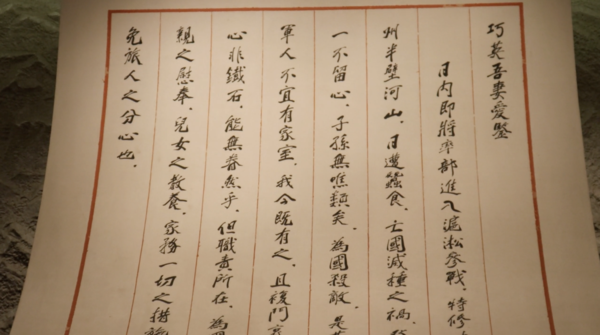 巧英吾妻愛鑒
日內即將率部進入滬淞參戰，特修
州半壁河山，日遭蠶食，亡國滅種之禍，
一不留心，子孫無噍類矣，為國殺敵，是
軍人不宜有家室，我今既有之，且後門
心非鐵石，能無眷然乎，但職責所在，為
親之慰奉，兒女之教食，家務一切之措施
免旅人之分心也，